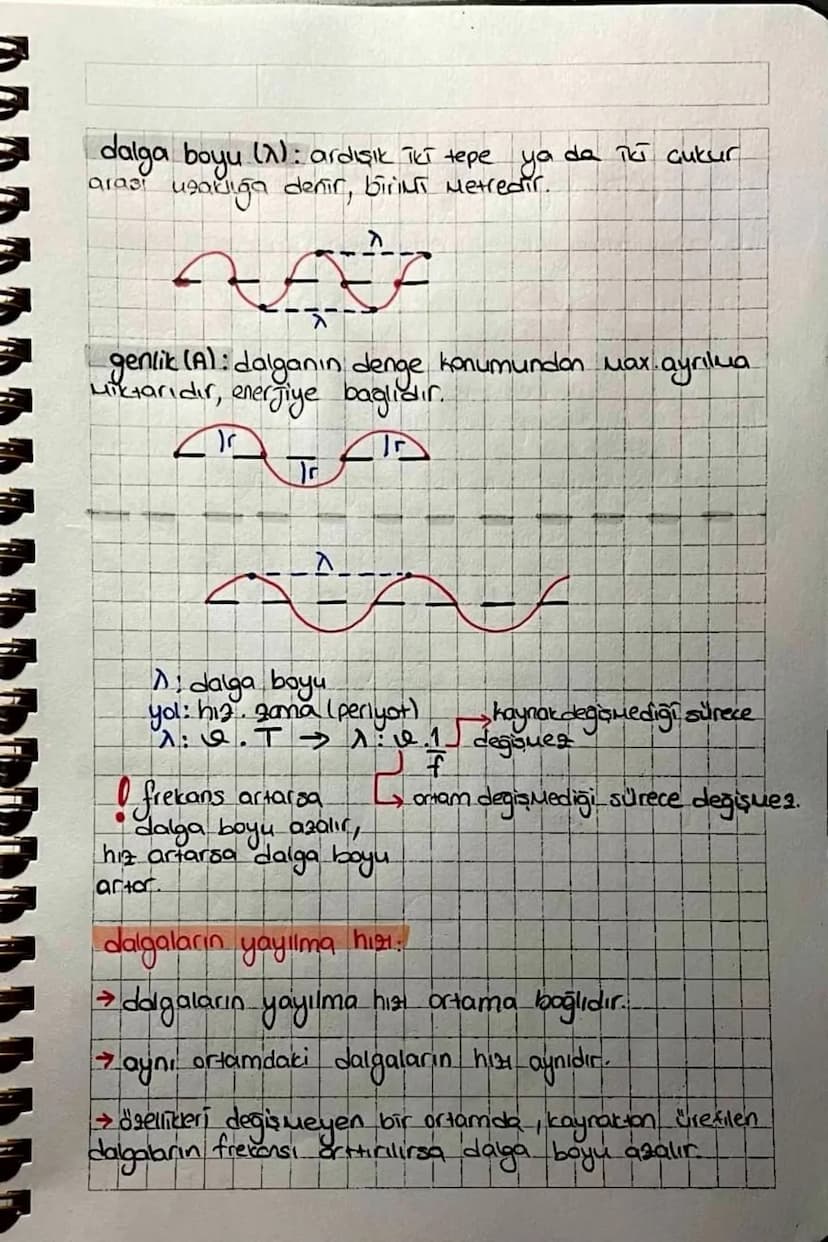 dalga boyu (λ): ardışık iki tepe ya da iki çukur
arası uzaklığa denir, birimi metredir.
λ
λ
genlik (A): dalganın denge konumundan max. ayrılma
miktarıdır, enerjiye bağlıdır.
}r }r
}r
λ
λ: dalga boyu
yol: hız . zama (periyot)
kaynak değişmediği sürece
λ: v . T → λ: v . 1/f
değişmez
! frekans artarsa
ortam değişmediği sürece değişmez.
dalga boyu azalır,
hız artarsa dalga boyu
artar.
dalgaların yayılma hızı:
→ dalgaların yayılma hızı ortama bağlıdır.
→ aynı ortamdaki dalgaların hızı aynıdır.
→ özellikleri değişmeyen bir ortamda, kaynaktan üretilen
dalgaların frekansı arttırılırsa dalga boyu azalır.